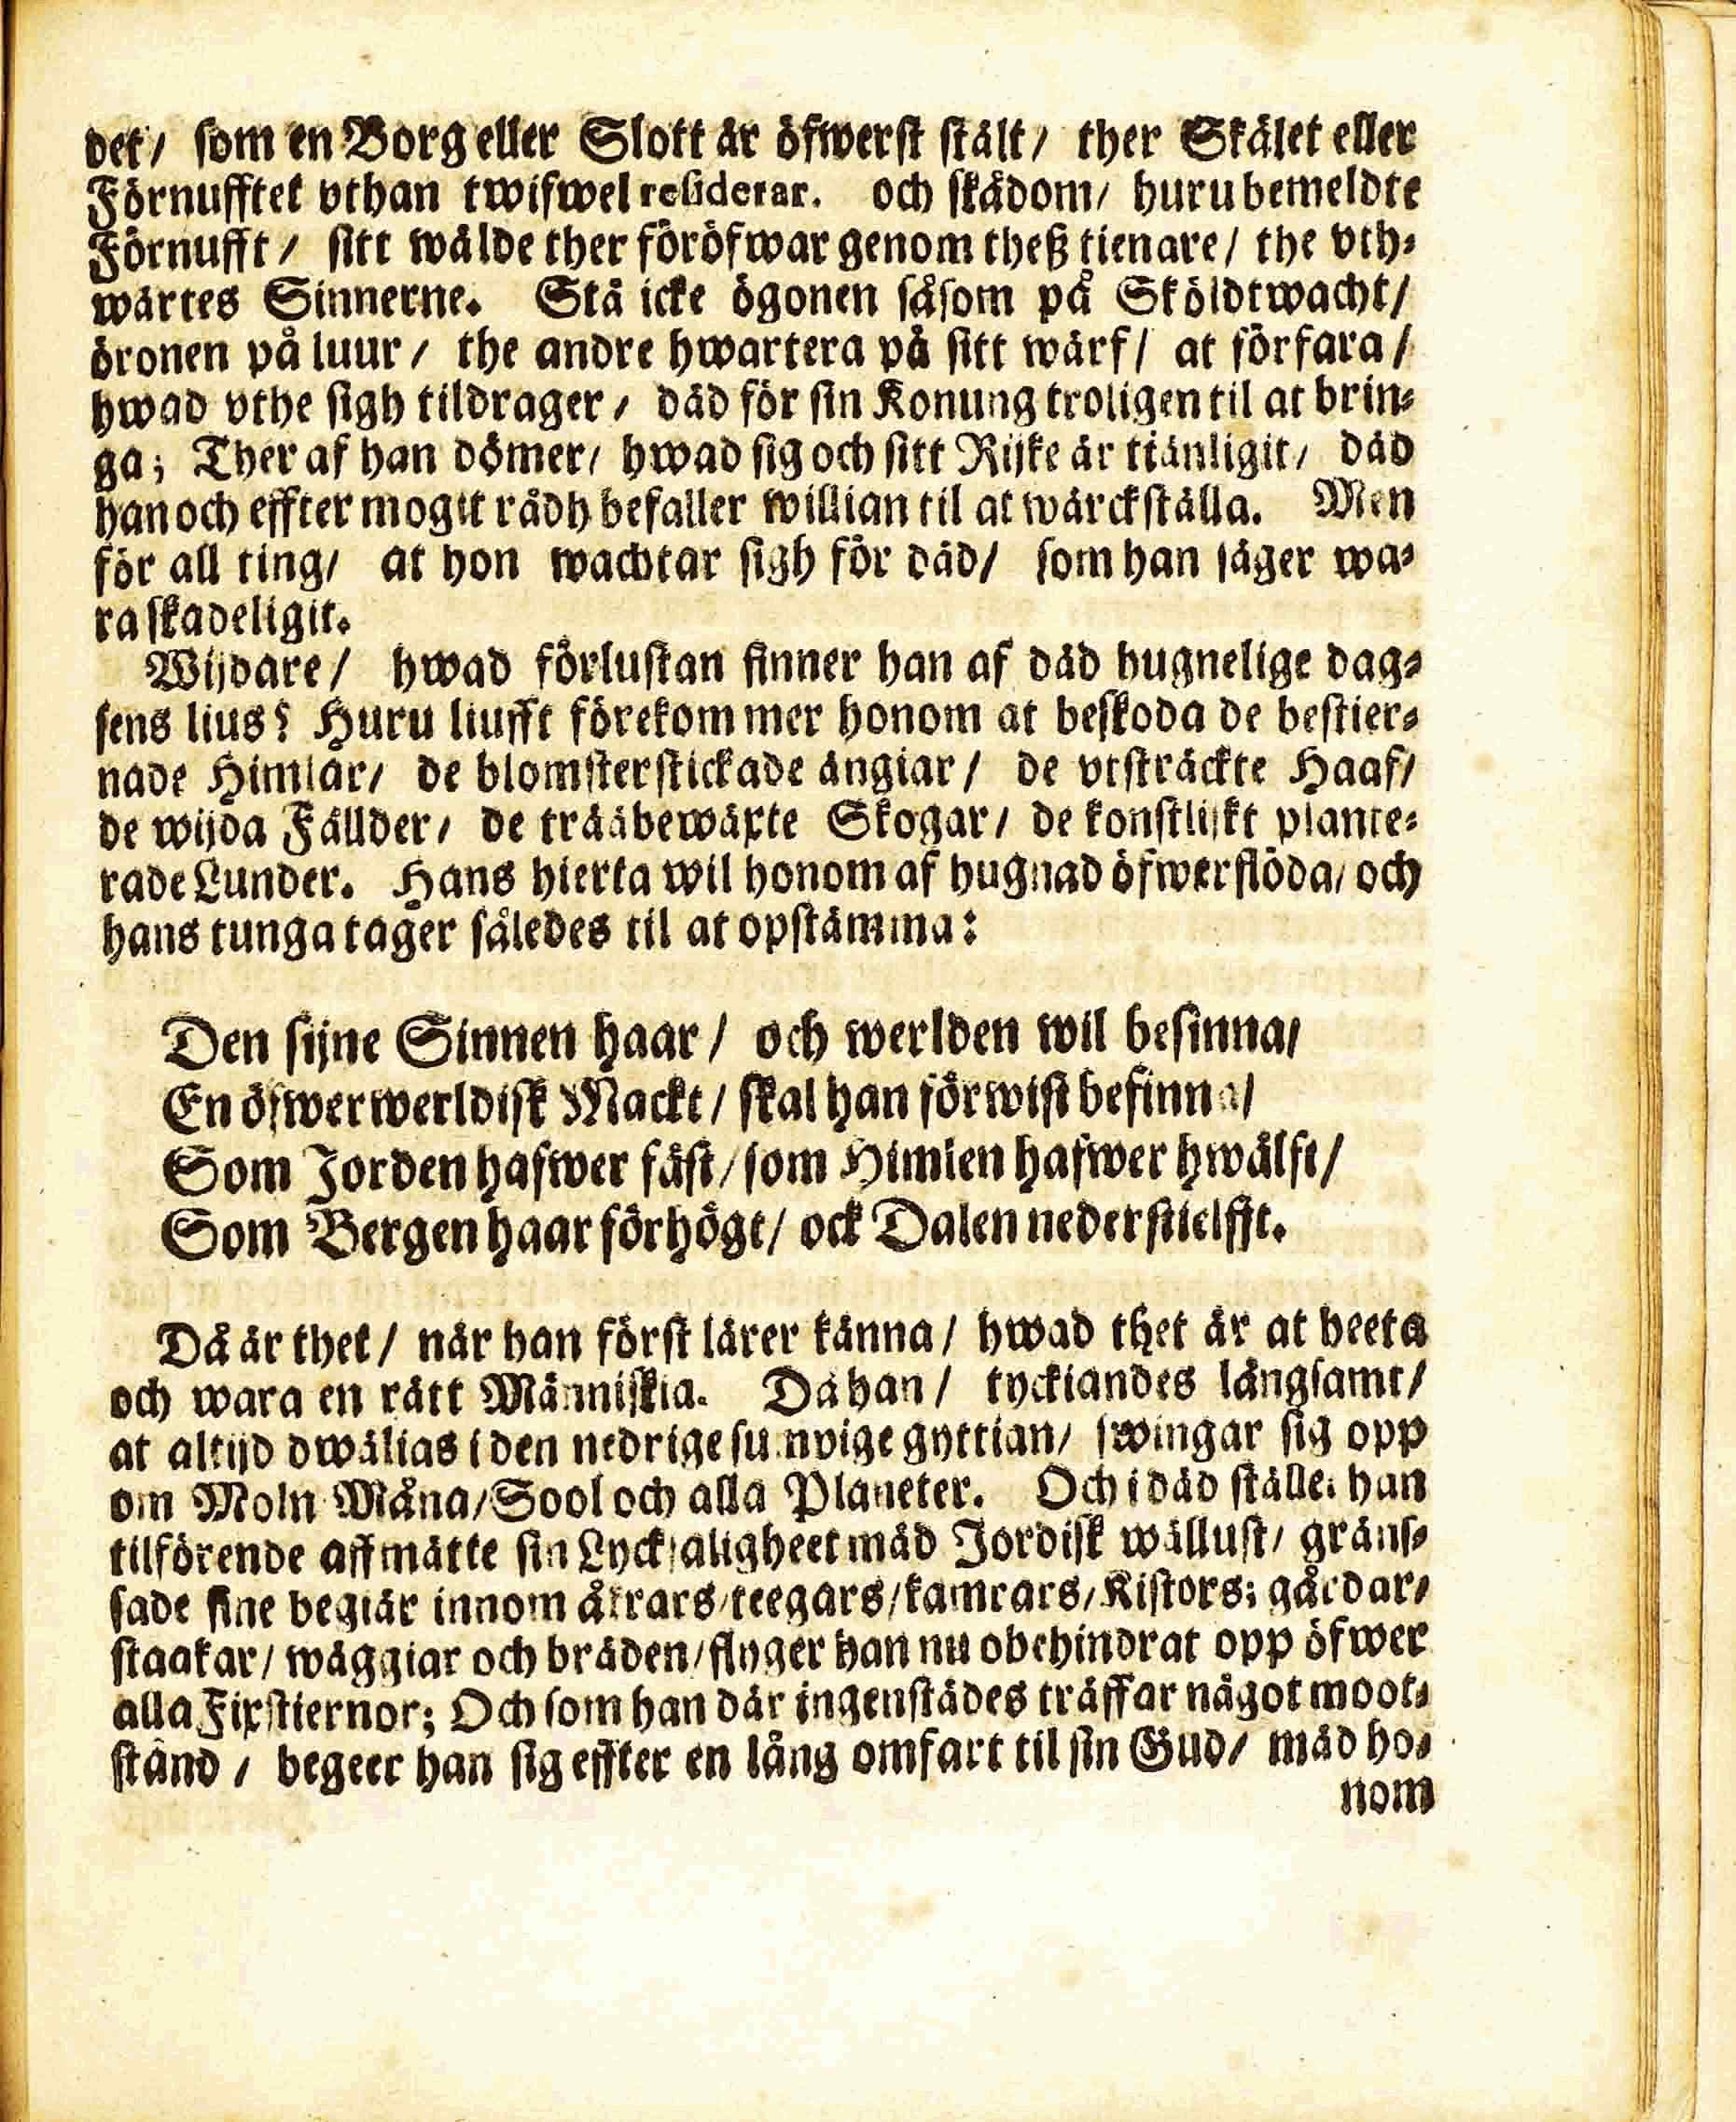 det/ som en Borg eller Slott är öfwerst stält/ ther Skälet eller
Förnufftet vthan twifwel residerar. och skådom/ huru bemeldte
Förnufft/ sitt wälde ther föröfwar genom theß tienare/ the vth-
wärtes Sinnerne. Stå icke ögonen såsom på Sköldtwacht/
öronen på luur/ the andre hwartera på sitt wärf/ at förfara/
hwad vthe sigh tildrager/ däd för sin Konung troligen til at brin-
ga; Ther af han dömer/ hwad sig och sitt Rijke är tiänligit/ däd
han och effter mogit rådh befaller willian til at wärckställa. Men
för all ting/ at hon wachtar sigh för däd/ som han säger wa-
ra skadeligit.
Wijdare/ hwad förlustan finner han af däd hugnelige dag-
sens lius? Huru liufft förekommer honom at beskoda de bestier-
nade Himlar/ de blomsterstickade ängiar/ de vtsträckte Haaf/
de wijda Fällder/ de trääbewäxte Skogar/ de konstlijkt plante-
rade Lunder. Hans hierta wil honom af hugnad öfwerflöda/ och
hans tunga tager således til at opstämma:
Den sijne Sinnen haar/ och werlden wil besinna/
En öfwerwerldisk Mackt/ skal han förwist befinna/
Som Jorden hafwer fäst/ som Himlen hafwer hwälft/
Som Bergen haar förhögt/ ock Dalen nederstielfft.
Då är thet/ när han först lärer känna/ hwad thet är at heeta
och wara en rätt Människia. Då han/ tyckiandes långsamt/
at altijd dwälias i den nedrige sunvige gyttian/ swingar sig opp
om Moln Måna/ Sool och alla Planeter. Och i däd ställe: han
tilförende affmätte sin Lycksaligheet mäd Jordisk wällust/ gräns-
sade sine begiär innom åkrars/ teegars/ kamrars/ Kistors; gärdar/
staakar/ wäggiar och bräden/ flyger han nu obehindrat opp öfwer
alla Fixstiernor; Och som han där ingenstädes träffar något moot-
stånd/ begeer han sig effter en lång omfart til sin Gud/ mäd ho-
nom